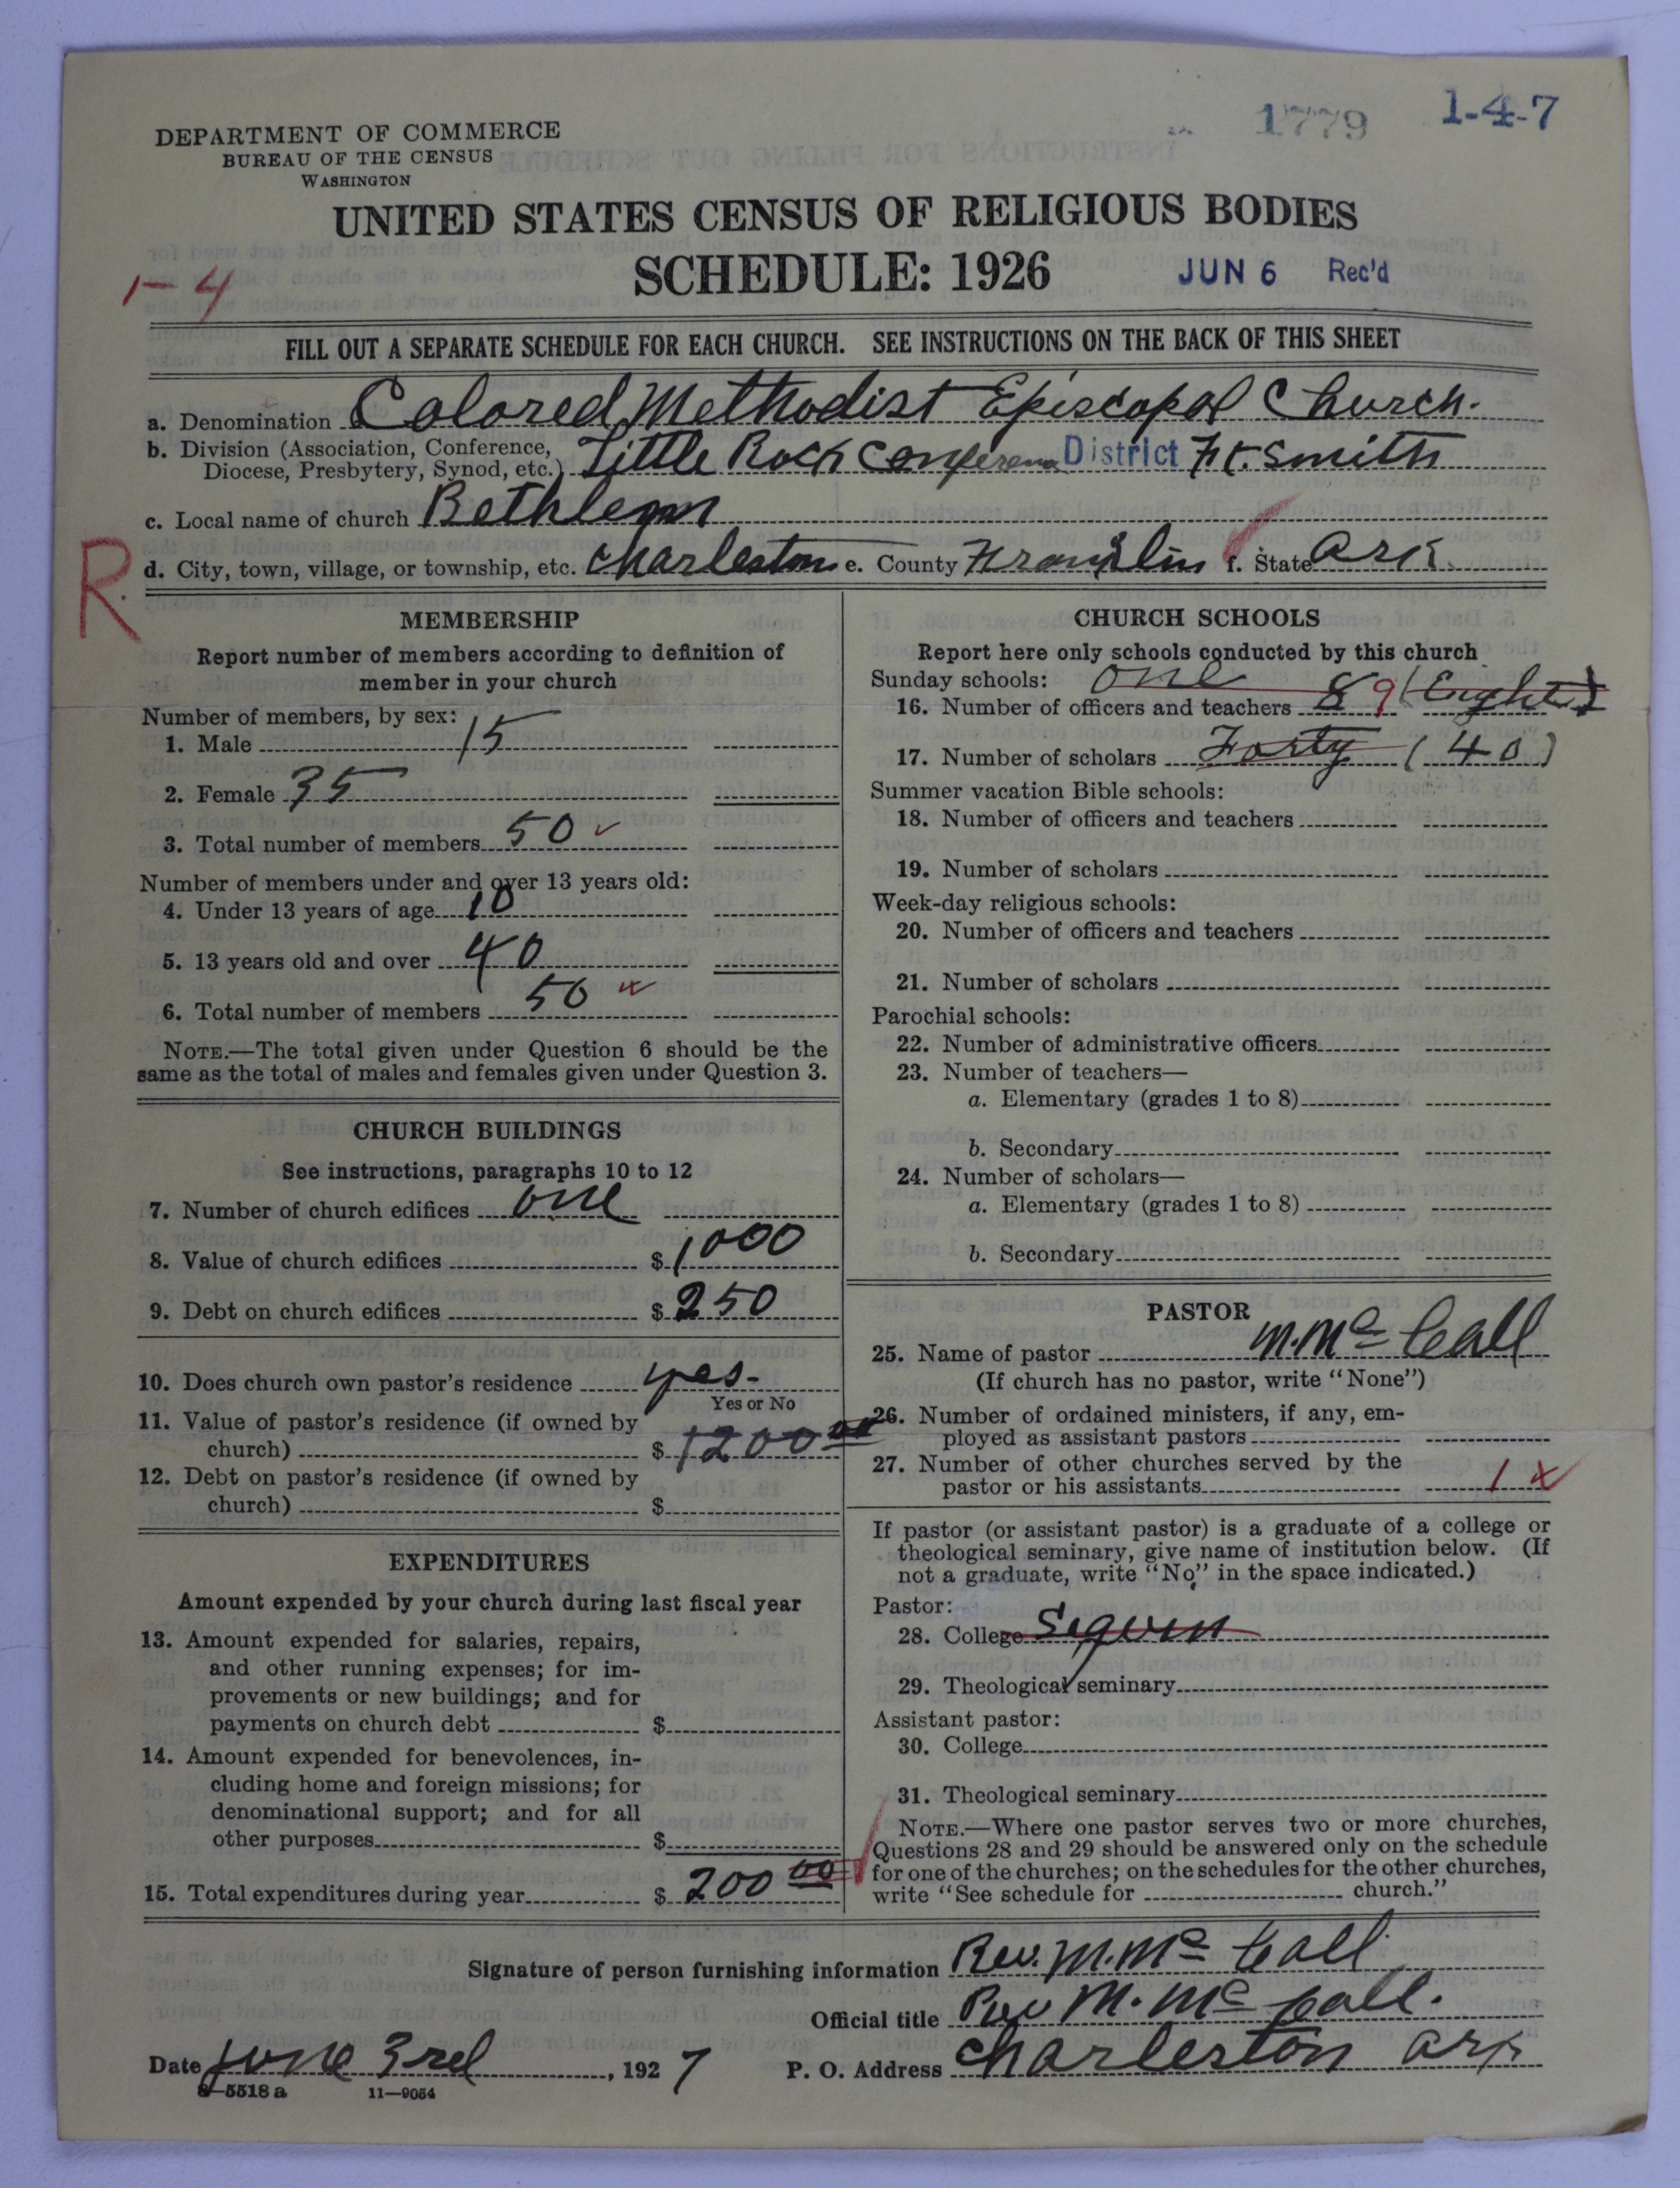 1779 1-4-7
DEPARTMENT OF COMMERCE
BUREAU OF THE CENSUS
WASHINGTON
UNITED STATES CENSUS OF RELIGIOUS BODIES
SCHEDULE: 1926 JUN 6 Rec'd
1-4
FILL OUT A SEPARATE SCHEDULE FOR EACH CHURCH. SEE INSTRUCTIONS ON THE BACK OF THIS SHEET
a. Denomination Colored Methodist Episcopal Church.
b. Division (Association, Conference, Diocese, Presbytery, Synod, etc.) Little Rock Conference District Ft. Smith
c. Local name of church Bethlem
R. d. City, town, village, or township, etc. Charleston e. County Franklin f. State Ark.
MEMBERSHIP
Report number of members according to definition of
member in your church
Number of members, by sex:
1. Male 15
2. Female 35
3. Total number of members 50
Number of members under and over 13 years old:
4. Under 13 years of age 10
5. 13 years old and over 40
6. Total number of members 50
NOTE.—The total given under Question 6 should be the
same as the total of males and females given under Question 3.
CHURCH BUILDINGS
See instructions, paragraphs 10 to 12
7. Number of church edifices one
8. Value of church edifices $ 1000
9. Debt on church edifices $ 250
10. Does church own pastor's residence yes-
Yes or No
11. Value of pastor's residence (if owned by
church) $ 1200 00
12. Debt on pastor's residence (if owned by
church) $
EXPENDITURES
Amount expended by your church during last fiscal year
13. Amount expended for salaries, repairs,
and other running expenses; for im-
provements or new buildings; and for
payments on church debt $
14. Amount expended for benevolences, in-
cluding home and foreign missions; for
denominational support; and for all
other purposes $
15. Total expenditures during year $ 200 00
CHURCH SCHOOLS
Report here only schools conducted by this church
Sunday schools: one
16. Number of officers and teachers 8 9 (Eight)
17. Number of scholars Forty (40)
Summer vacation Bible schools:
18. Number of officers and teachers
19. Number of scholars
Week-day religious schools:
20. Number of officers and teachers
21. Number of scholars
Parochial schools:
22. Number of administrative officers
23. Number of teachers—
a. Elementary (grades 1 to 8)
b. Secondary
24. Number of scholars—
a. Elementary (grades 1 to 8)
b. Secondary
PASTOR
25. Name of pastor M. Mc Call
(If church has no pastor, write "None")
26. Number of ordained ministers, if any, em-
ployed as assistant pastors
27. Number of other churches served by the
pastor or his assistants 1 x
If pastor (or assistant pastor) is a graduate of a college or
theological seminary, give name of institution below. (If
not a graduate, write "No" in the space indicated.)
Pastor:
28. College
29. Theological seminary
Assistant pastor:
30. College
31. Theological seminary
NOTE.—Where one pastor serves two or more churches,
Questions 28 and 29 should be answered only on the schedule
for one of the churches; on the schedules for the other churches,
write "See schedule for church."
Signature of person furnishing information Rev. M. Mc Call
Official title Rev M. Mc Call.
Date June 3rd, 1927 P. O. Address Charleston Ark
8—5518 a 11—9054